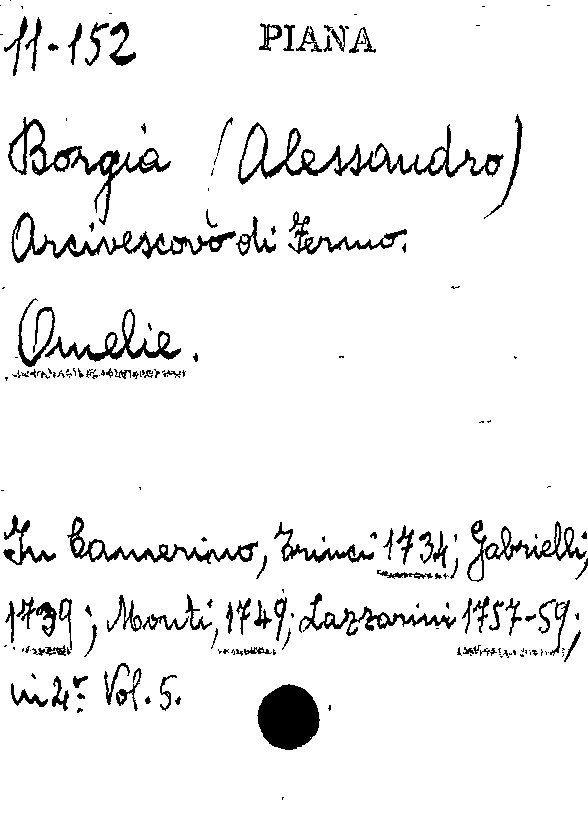 11-152 PIANA
Borgia (Alessandro)
Arcivescovo di Fermo.
Omelie.
In Camerino, Trinci 1734; Gabrielli,
1739; Monti, 1749; Lazzarini 1757-59;
in 4º Vol. 5.